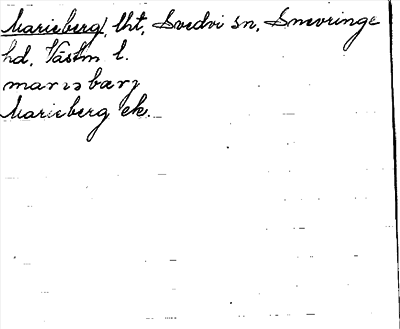 Marieberg, lht, Svedvi sn, Snevringe
hd, Västm l.
mariabærj
Marieberg ek.